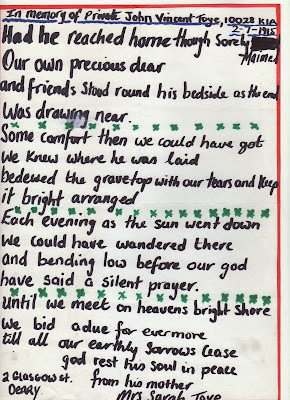 In memory of Private John Vincent Toye, 10028 KIA
2-7-1915
Had he reached home though Sorely
Maimed
Our own precious dear
and friends stood round his bedside as the end
Was drawing near.
Some comfort then we could have got
We knew where he was laid
bedewed the gravetop with our tears and keep
it bright arranged
Each evening as the sun went down
We could have wandered there
and bending low before our god
have said a silent prayer.
Until we meet on heavens bright shore
We bid adue for evermore
till all our earthly sorrows cease
god rest his soul in peace
2 Glasgow St. from his mother
Derry. Mrs Sarah Toye